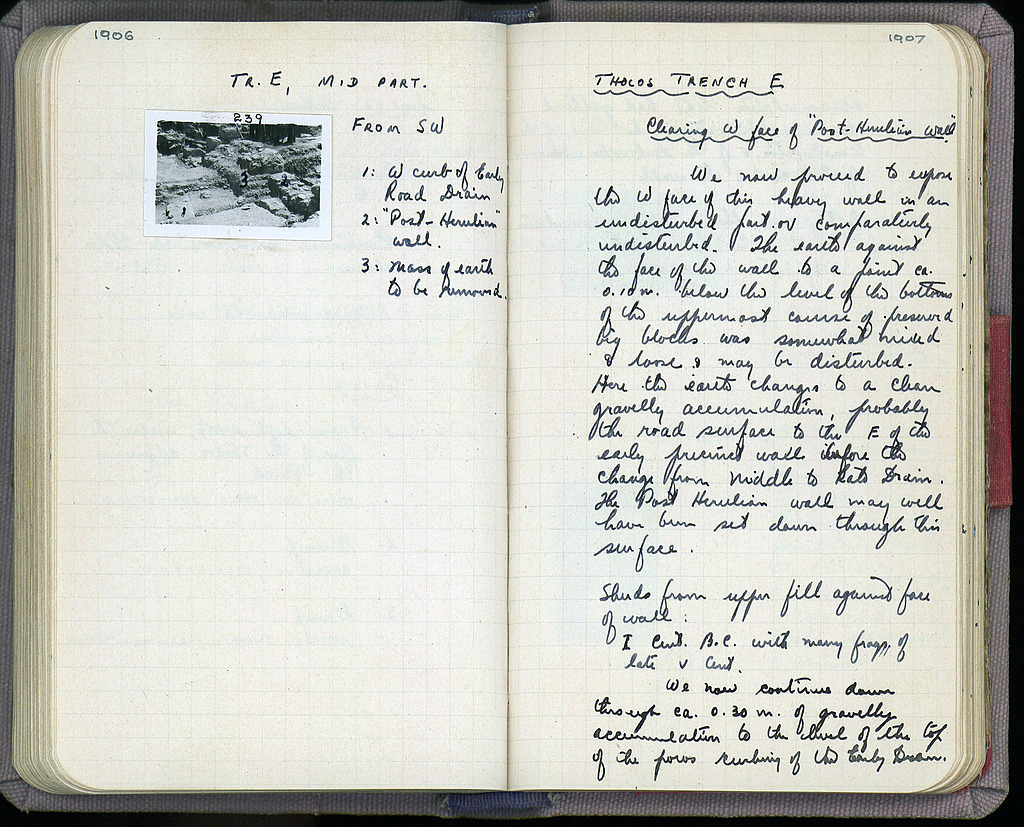 1906
TR. E, MID PART.
239
3 2
1
FROM SW
1: W curb of Early
Road Drain
2: "Post-Herulian"
wall.
3: Mass of earth
to be removed.
1907
THOLOS TRENCH E
Clearing W face of "Post-Herulian Wall"
We now proceed to expose
the W face of this heavy wall in an
undisturbed part or comparatively
undisturbed. The earth against
the face of the wall to a point ca.
0.10 m. below the level of the bottoms
of the uppermost course of preserved
big blocks was somewhat mixed
& loose & may be disturbed.
Here the earth changes to a clean
gravelly accumulation, probably
the road surface to the E of the
early precinct wall before the
change from Middle to Late Drain.
The Post Herulian wall may well
have been set down through this
surface.
Sherds from upper fill against face
of wall:
I Cent. B.C. with many frags. of
late V Cent.
We now continue down
through ca. 0.30 m. of gravelly
accumulation to the level of the top
of the poros curbing of the Early Drain.